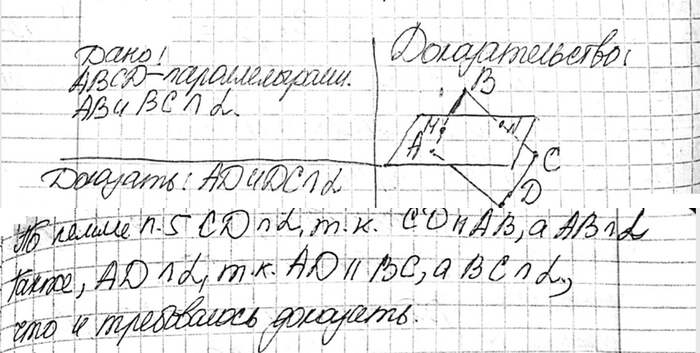 Дано:
ABCD-параллелограмм.
AB и BC ∩ α.
Доказать: AD и DC ∩ α
Доказательство:
B
M
N
A
C
D
По лемме п.5 CD ∩ α, т.к. CD || AB, а AB ∩ α
также, AD ∩ α, т.к. AD || BC, а BC ∩ α,
что и требовалось доказать.